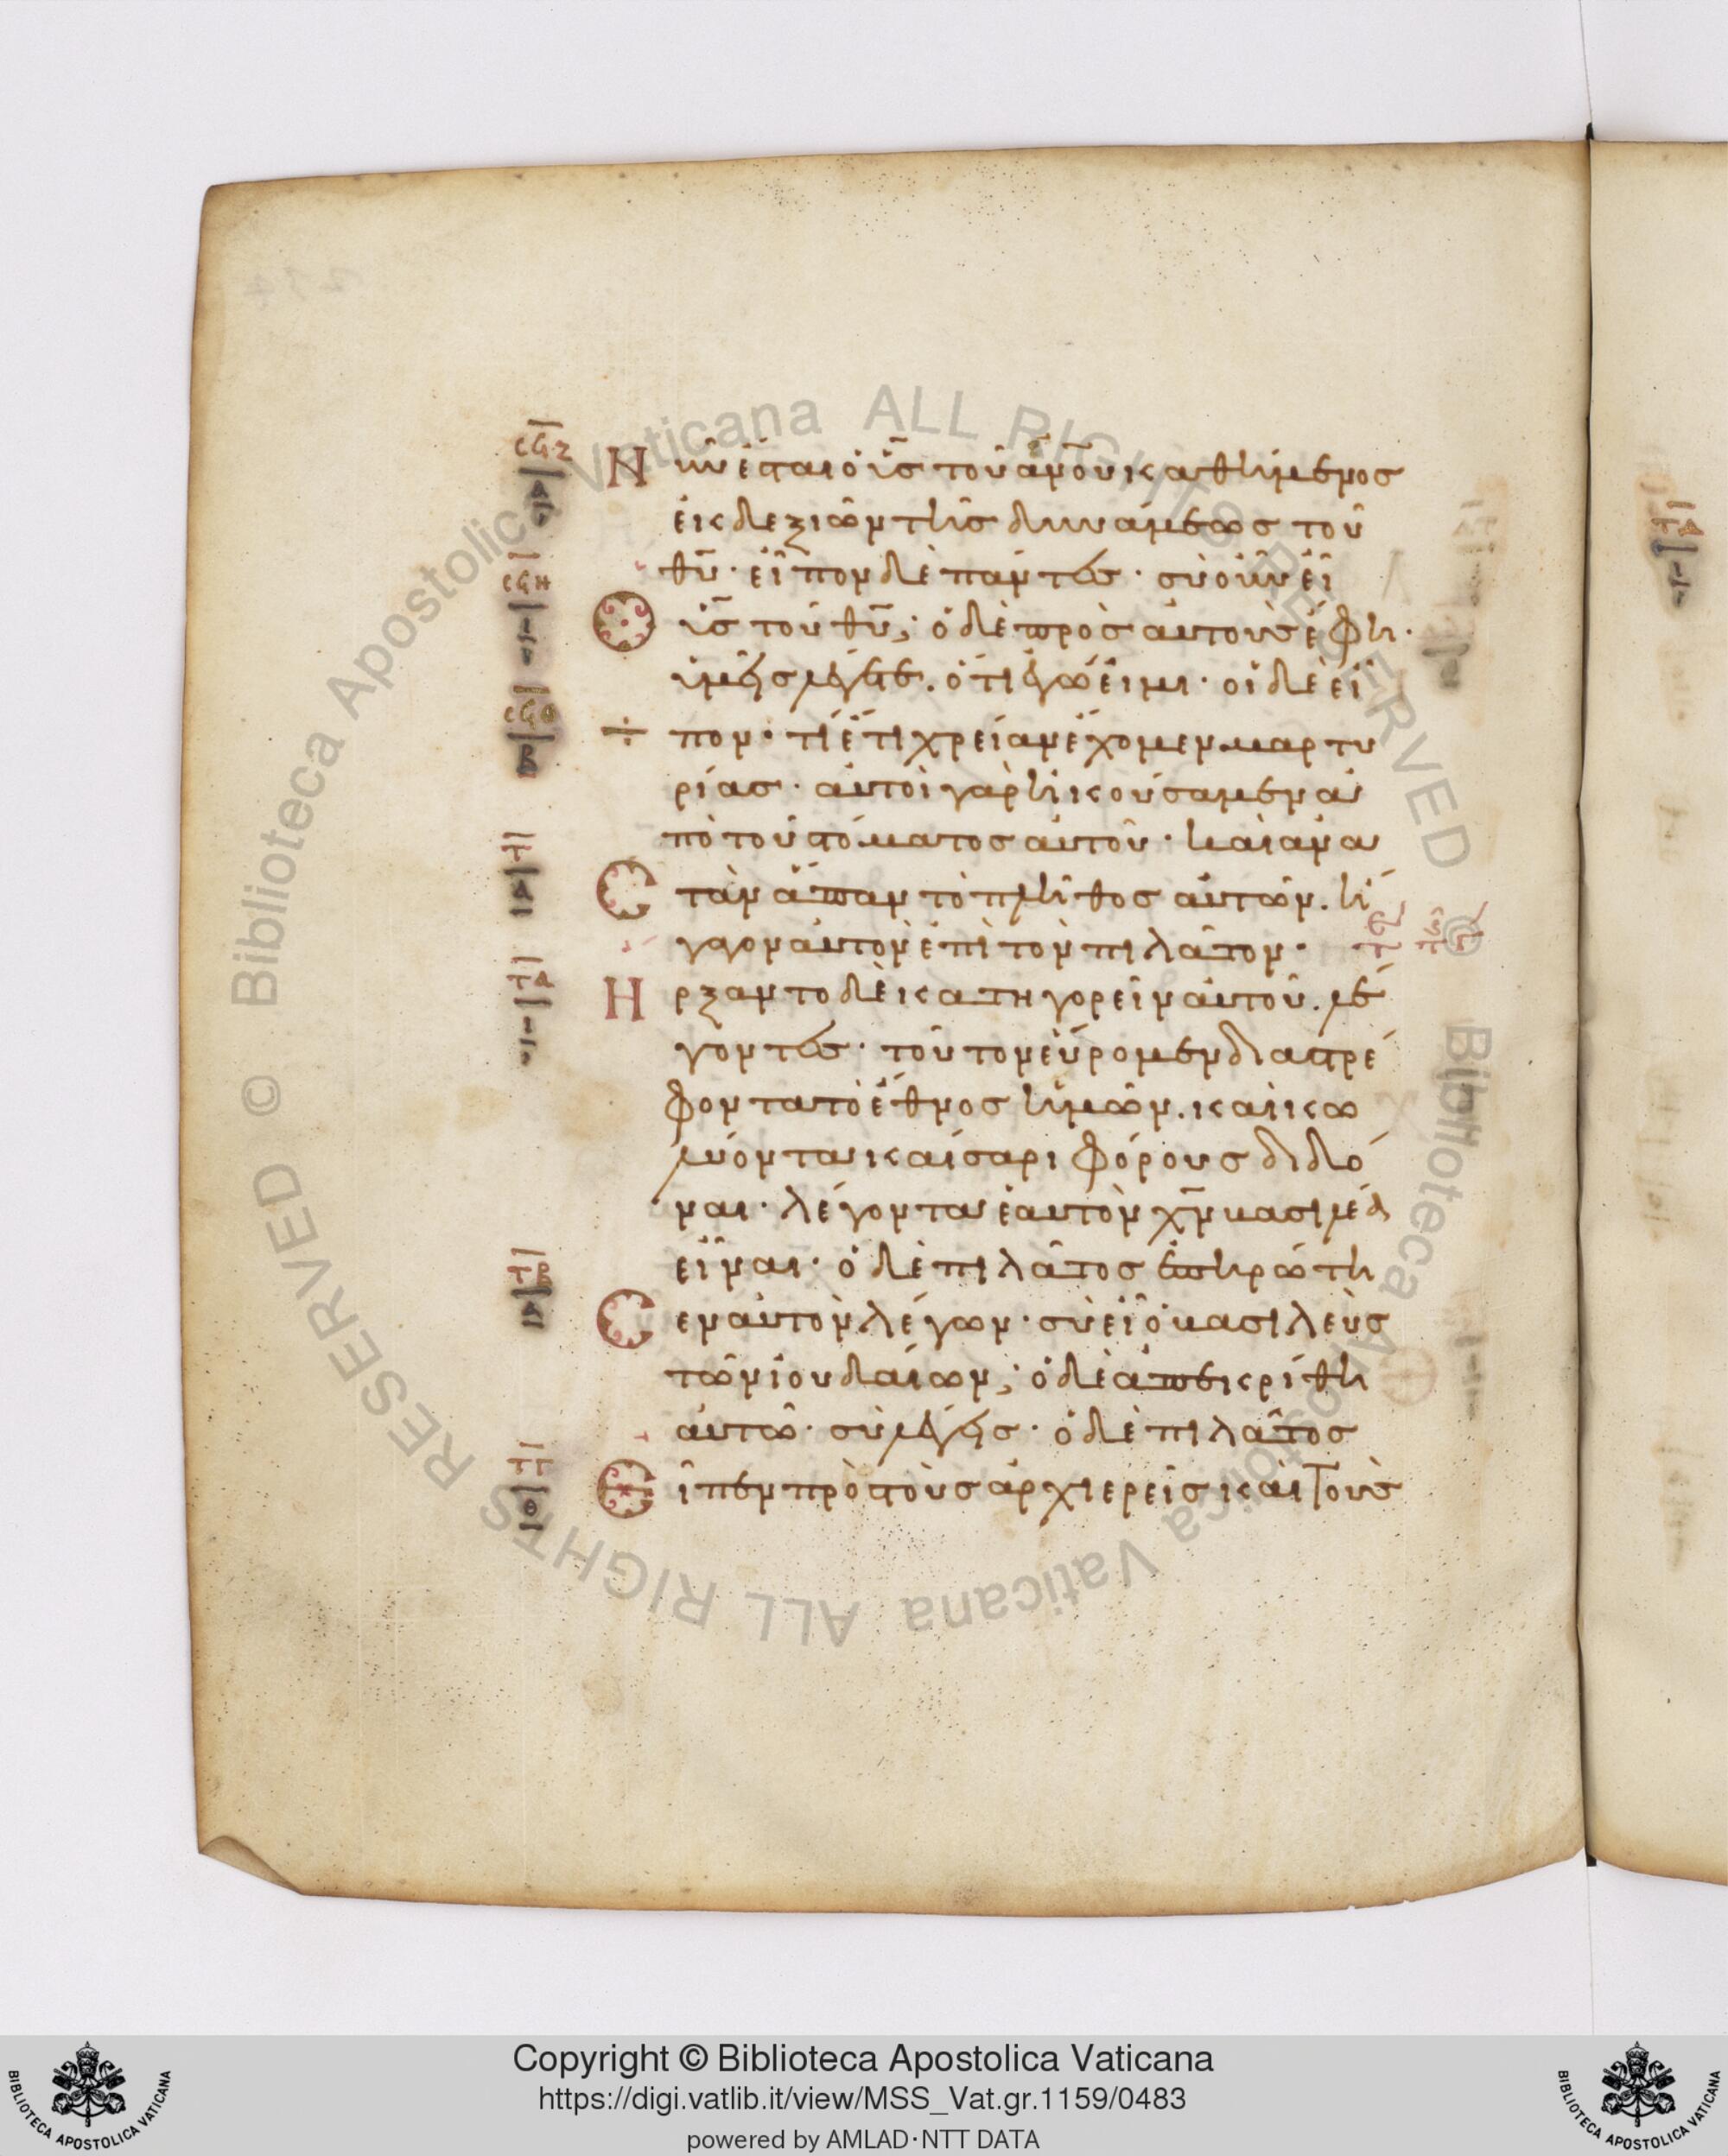 Νῦν ἔσται ὁ υ̅ς̅ τοῦ α̅ν̅ο̅υ̅ καθήμενος
ἐκ δεξιῶν τῆς δυνάμεως τοῦ
θ̅υ̅· εἶπον δὲ πάντες· σὺ οὖν εἶ
Ὁ υ̅ς̅ τοῦ θ̅υ̅; ὁ δὲ πρὸς αὐτοὺς ἔφη·
ὑμεῖς λέγετε. ὅτι ἐγώ εἰμι· οἱ δὲ εἶ
πον· τί ἔτι χρείαν ἔχομεν μαρτυ
ρίας· αὐτοὶ γὰρ ἠκούσαμεν ἀ
πὸ τοῦ στόματος αὐτοῦ· καὶ ἀνα
Στὰν ἅπαν τὸ πλῆθος αὐτῶν. ἤ
γαγον αὐτὸν ἐπὶ τὸν πιλᾶτον·
Ἤρξαντο δὲ κατηγορεῖν αὐτοῦ. λέ
γοντες· τοῦτον εὕρομεν διαστρέ
φοντα τὸ ἔθνος ἡμῶν. καὶ κω
λύοντα καίσαρι φόρους διδό
ναι· λέγοντα ἑαυτὸν χ̅ν̅ βασιλέα
εἶναι· ὁ δὲ πιλᾶτος ἐπηρώτη
Σεν αὐτὸν λέγων· σὺ εἶ ὁ βασιλεὺς
τῶν ἰουδαίων; ὁ δὲ ἀπεκρίθη
αὐτῶ· σὺ λέγεις· ὁ δὲ πιλᾶτος
Εἶπεν πρὸς τοὺς ἀρχιερεῖς καὶ τοὺς
ϹϤΖ
ϹϤΗ
ϹϤΘ
Β
Τ
Α
ΤΑ
ΤΒ
Copyright © Biblioteca Apostolica Vaticana
https://digi.vatlib.it/view/MSS_Vat.gr.1159/0483
powered by AMLAD·NTT DATA
BIBLIOTECA APOSTOLICA VATICANA
BIBLIOTECA APOSTOLICA VATICANA
© Biblioteca Apostolica Vaticana ALL RIGHTS RESERVED
Biblioteca Apostolica Vaticana ALL RIGHTS RESERVED